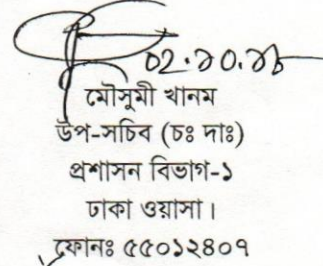 ০২.১০.১৮
মৌসুমী খানম
উপ-সচিব (চঃ দাঃ)
প্রশাসন বিভাগ-১
ঢাকা ওয়াসা।
ফোনঃ ৫৫০১২৪০৭